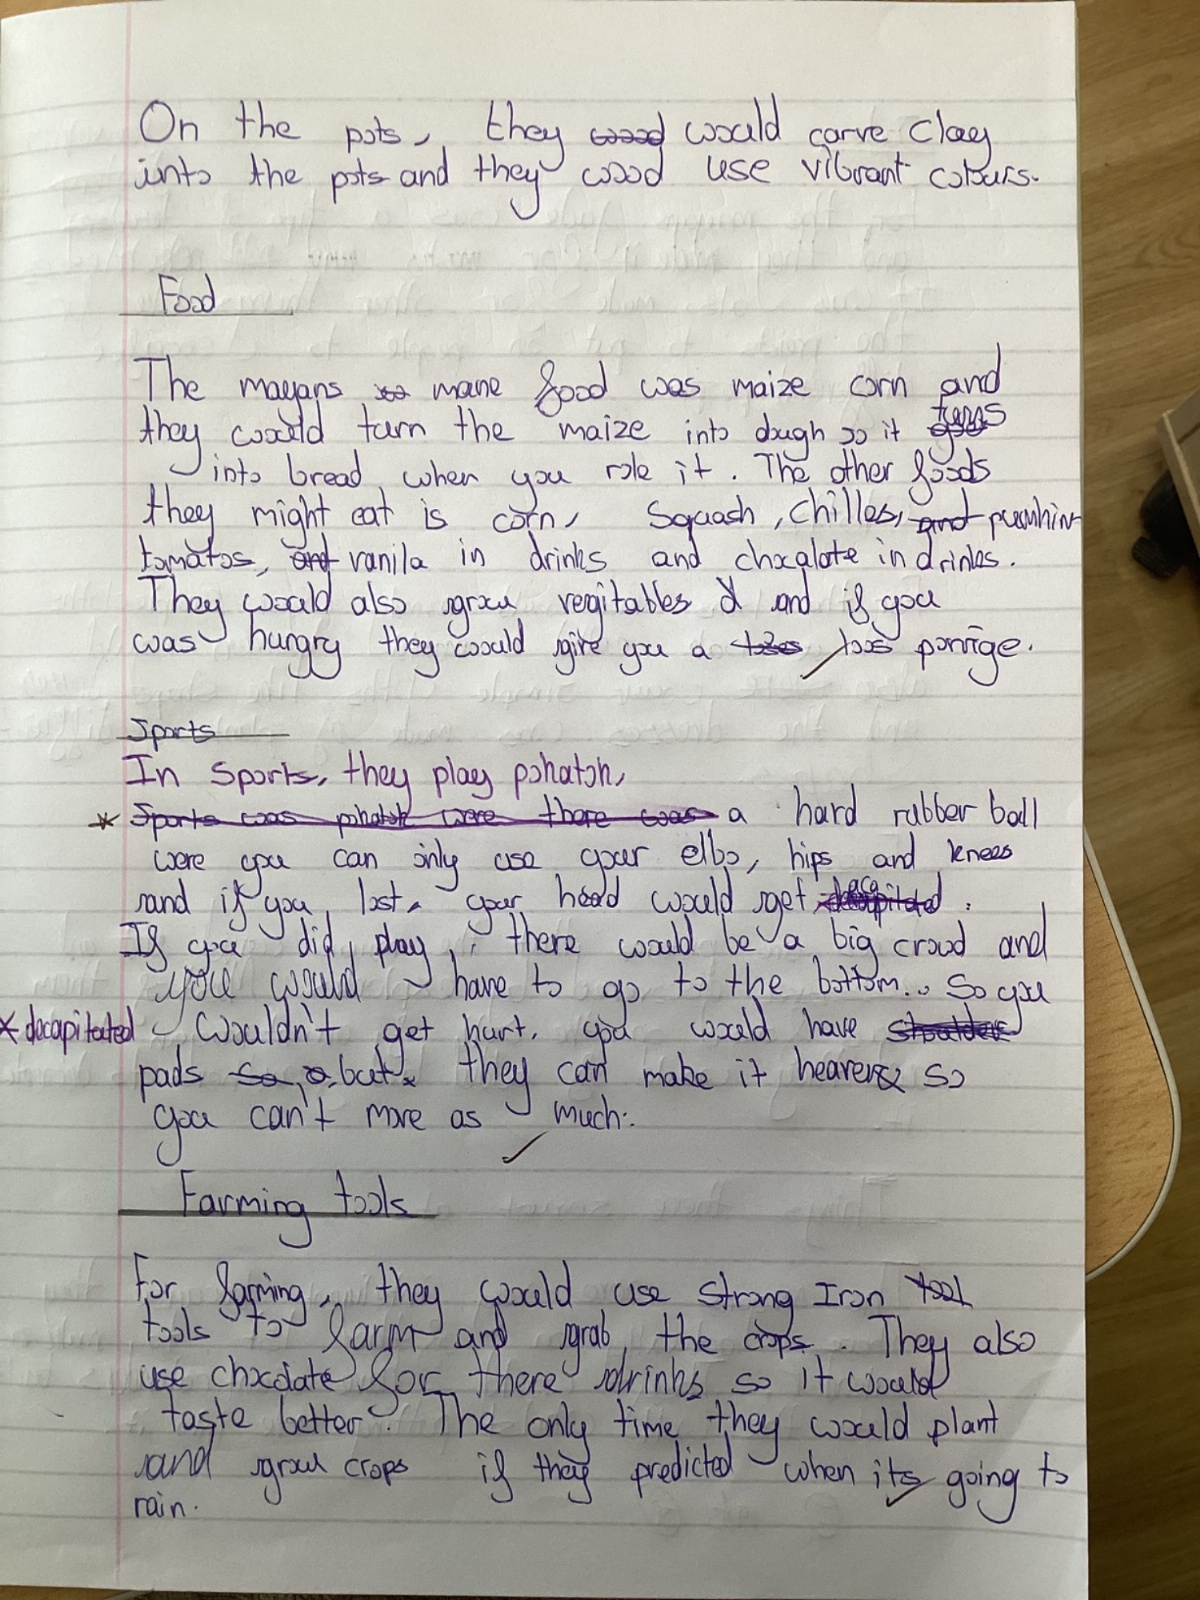 On the pots, they wood would carve Clay
into the pots and they wood use vibrant colours.
Food
The mayans mane food was maize corn and
they would turn the maize into dough so it turns
into bread when you role it. The other foods
they might eat is corn, Squash, chilles, and pumhin
tomatos, and vanila in drinks and chocalate in drinks.
They would also grow vergitables and if you
was hungry they would give you a porrige.
Sports
In Sports, they play pohatoh,
* Sports was pohatoh were there was a hard rubber ball
were you can only use your elbo, hips and knees
and if you lost, your head would get decapitated.
If you did play, there would be a big crowd and
you would have to go to the bottom.. So you
* decapitated Wouldn't get hurt. you would have shoulders
pads So but they can make it heaver so
you can't move as much.
Farming tools
For farming, they would use strong Iron tool
tools to farm and grab the crops. They also
use choclate for there drinks so it would
taste better. The only time they would plant
and grow crops if they predicted when its going to
rain.